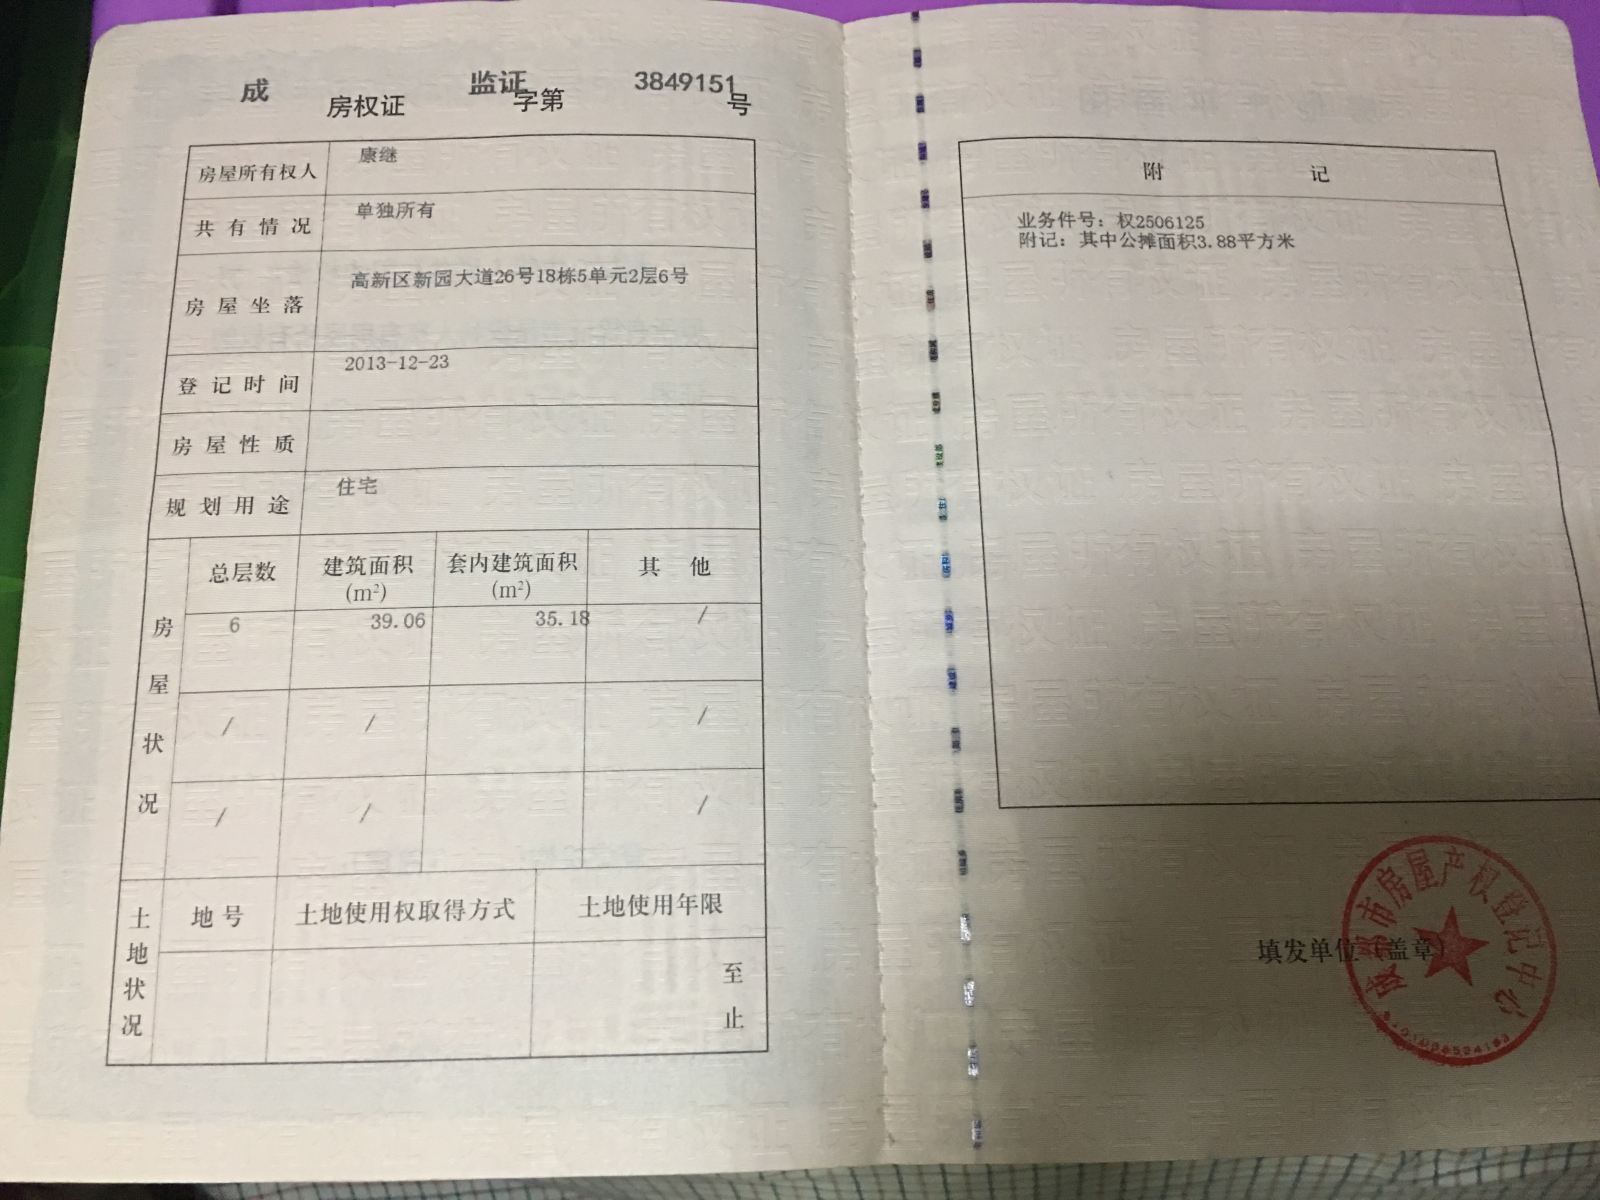 成 监证 3849151
房权证 字第 号
房屋所有权人 康继
共有情况 单独所有
房屋坐落 高新区新园大道26号18栋5单元2层6号
登记时间 2013-12-23
房屋性质
规划用途 住宅
房屋状况
总层数 建筑面积(m²) 套内建筑面积(m²) 其他
6 39.06 35.18 /
/ / /
/ / /
土地状况
地号 土地使用权取得方式 土地使用年限
至
止
附 记
业务件号：权2506125
附记：其中公摊面积3.88平方米
填发单位（盖章）
成都市房屋产权登记中心